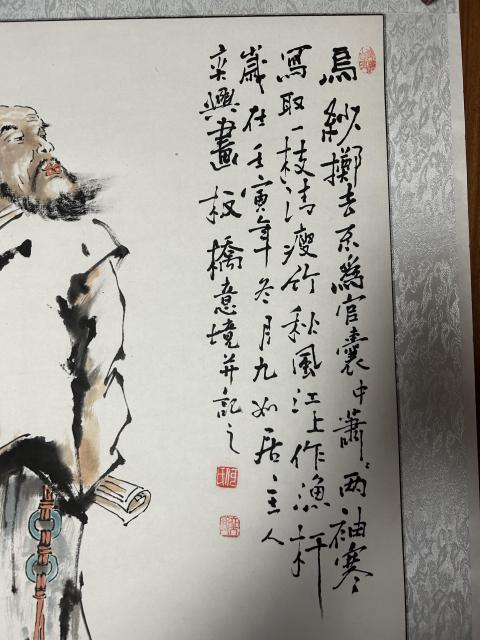 烏紗擲去不為官囊中蕭〻兩袖寒
寫取一枝清瘦竹秋風江上作漁杆
歲在壬寅年冬月九如居主人
乘興畫板橋意境并記之